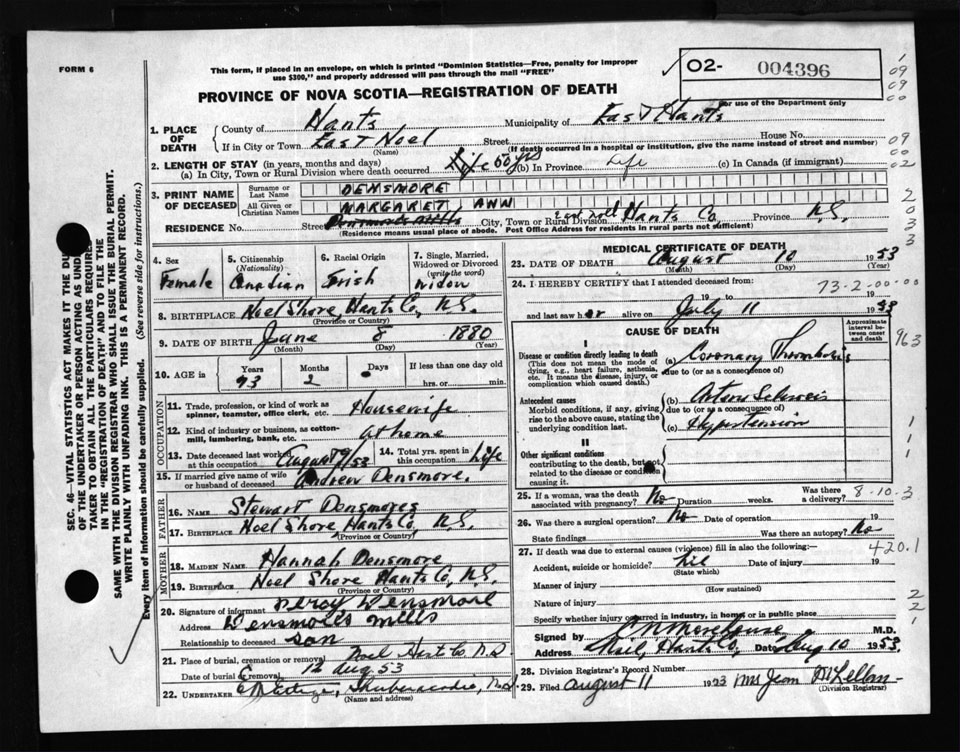 FORM 6
This form, if placed in an envelope, on which is printed "Dominion Statistics—Free, penalty for improper
use $300," and properly addressed will pass through the mail "FREE"
02- 004396
For use of the Department only
PROVINCE OF NOVA SCOTIA—REGISTRATION OF DEATH
1. PLACE OF DEATH
County of Hants Municipality of East Hants
If in City or Town East Noel Street House No.
(Name) (If death occurred in a hospital or institution, give the name instead of street and number)
2. LENGTH OF STAY (in years, months and days)
(a) In City, Town or Rural Division where death occurred Life 60 yrs (b) In Province Life (c) In Canada (if immigrant)
3. PRINT NAME OF DECEASED
Surname or Last Name DENSMORE
All Given or Christian Names MARGARET ANN
RESIDENCE No. Street Densmore Mills City, Town or Rural Division East Noel Hants Co Province N.S.
(Residence means usual place of abode. Post Office Address for residents in rural parts not sufficient)
4. Sex Female
5. Citizenship (Nationality) Canadian
6. Racial Origin Irish
7. Single, Married, Widowed or Divorced (write the word) Widow
8. BIRTHPLACE Noel Shore, Hants Co, N.S.
(Province or Country)
9. DATE OF BIRTH June 8 1880
(Month) (Day) (Year)
10. AGE in Years 73 Months 2 Days If less than one day old
hrs. or min.
OCCUPATION
11. Trade, profession, or kind of work as spinner, teamster, office clerk, etc. Housewife
12. Kind of industry or business, as cotton-mill, lumbering, bank, etc. at home
13. Date deceased last worked at this occupation August 9/53
14. Total yrs. spent in this occupation Life
15. If married give name of wife or husband of deceased Andrew Densmore.
FATHER
16. NAME Stewart Densmore
17. BIRTHPLACE Noel Shore Hants Co, N.S.
(Province or Country)
MOTHER
18. MAIDEN NAME Hannah Densmore
19. BIRTHPLACE Noel Shore Hants Co, N.S.
(Province or Country)
20. Signature of informant Percy Densmore
Address Densmore's Mills
Relationship to deceased son
21. Place of burial, cremation or removal Noel Hants Co N.S
Date of burial or removal 12 Aug 53
22. UNDERTAKER Shubenacadie, N.S.
MEDICAL CERTIFICATE OF DEATH
23. DATE OF DEATH August 10 1953
(Month) (Day)
24. I HEREBY CERTIFY that I attended deceased from: 73-2-00-00
19 to 19
and last saw her alive on July 11 1953
CAUSE OF DEATH
Approximate interval between onset and death
I
Disease or condition directly leading to death
(This does not mean the mode of dying, e.g., heart failure, asthenia, etc. It means the disease, injury, or complication which caused death.)
(a) Coronary Thrombosis
due to (or as a consequence of)
Antecedent causes
Morbid conditions, if any, giving rise to the above cause, stating the underlying condition last.
(b) Arterio Sclerosis
due to (or as a consequence of)
(c) Hypertension
II
Other significant conditions
contributing to the death, but not related to the disease or condition causing it.
25. If a woman, was the death associated with pregnancy? No Duration weeks. Was there a delivery? 8-10-3
26. Was there a surgical operation? No Date of operation 19
State findings Was there an autopsy? No
27. If death was due to external causes (violence) fill in also the following:— 420.1
Accident, suicide or homicide? Nil Date of injury 19
(State which)
Manner of injury
(How sustained)
Nature of injury
Specify whether injury occurred in industry, in home or in public place
Signed by M.D.
Address Noel, Hants Co, Date Aug 10 1953
28. Division Registrar's Record Number
29. Filed August 11 1953 Mrs Jean McLellan
(Division Registrar)
SEC. 46—VITAL STATISTICS ACT MAKES IT THE DU
OF THE UNDERTAKER OR PERSON ACTING AS UND
TAKER TO OBTAIN ALL THE PARTICULARS REQUIRE
IN THE "REGISTRATION OF DEATH" AND TO FILE THE
SAME WITH THE DIVISION REGISTRAR WHO SHALL ISSUE THE BURIAL PERMIT.
WRITE PLAINLY WITH UNFADING INK. THIS IS A PERMANENT RECORD.
Every item of Information should be carefully supplied. (See reverse side for instructions.)